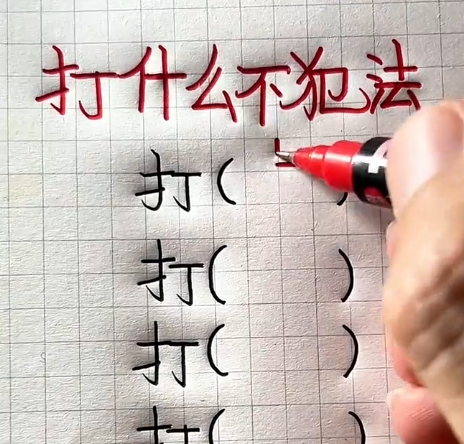 打什么不犯法
打( )
打( )
打( )
打( )